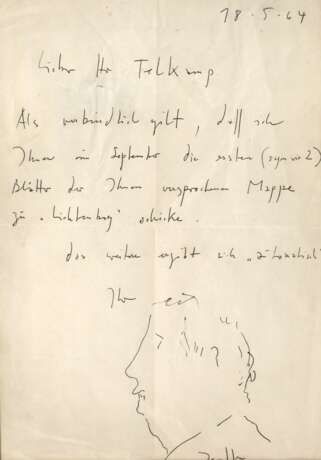 18.5.64
Lieber Hr Telkamp
Als verbindlich gilt, daß ich
Ihnen im September die ersten
Blätter der Ihnen versprochenen Mappe
zu „Lichtenberg" schicke.
das weitere ergibt sich „automatisch"
Ihr